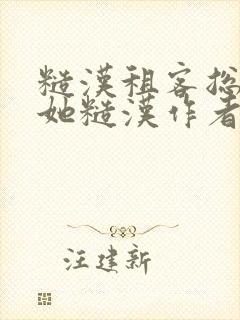 糙漢租客總
她糙漢作者
汪建新